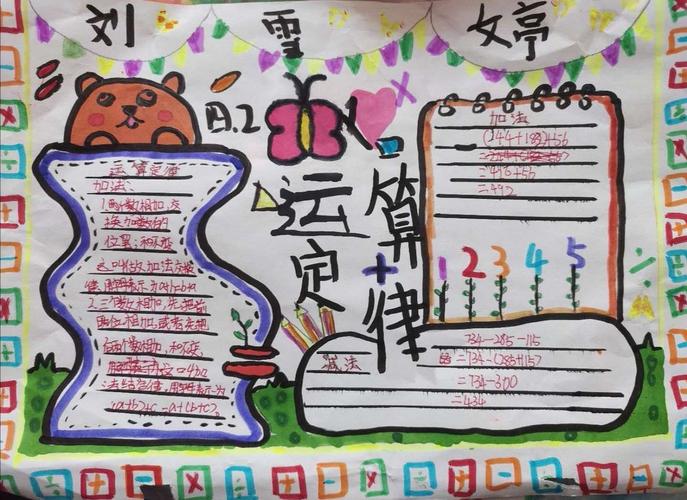 刘雪文婷
四.2
运算定律
运算定律
加法:
1.两个数相加,交
换加数的
位置,和不变
这叫做加法交换
律,用字母表示为a+b=b+a
2.三个数相加,先把前
两位相加,或者先把
后两个数相加,和不变,
(a+b)+c=a+(b+c)
加法
(244+182)+56
=476+56
=492
1 2 3 4 5
减法
734-285-115
=734-(285+115)
=734-300
=434